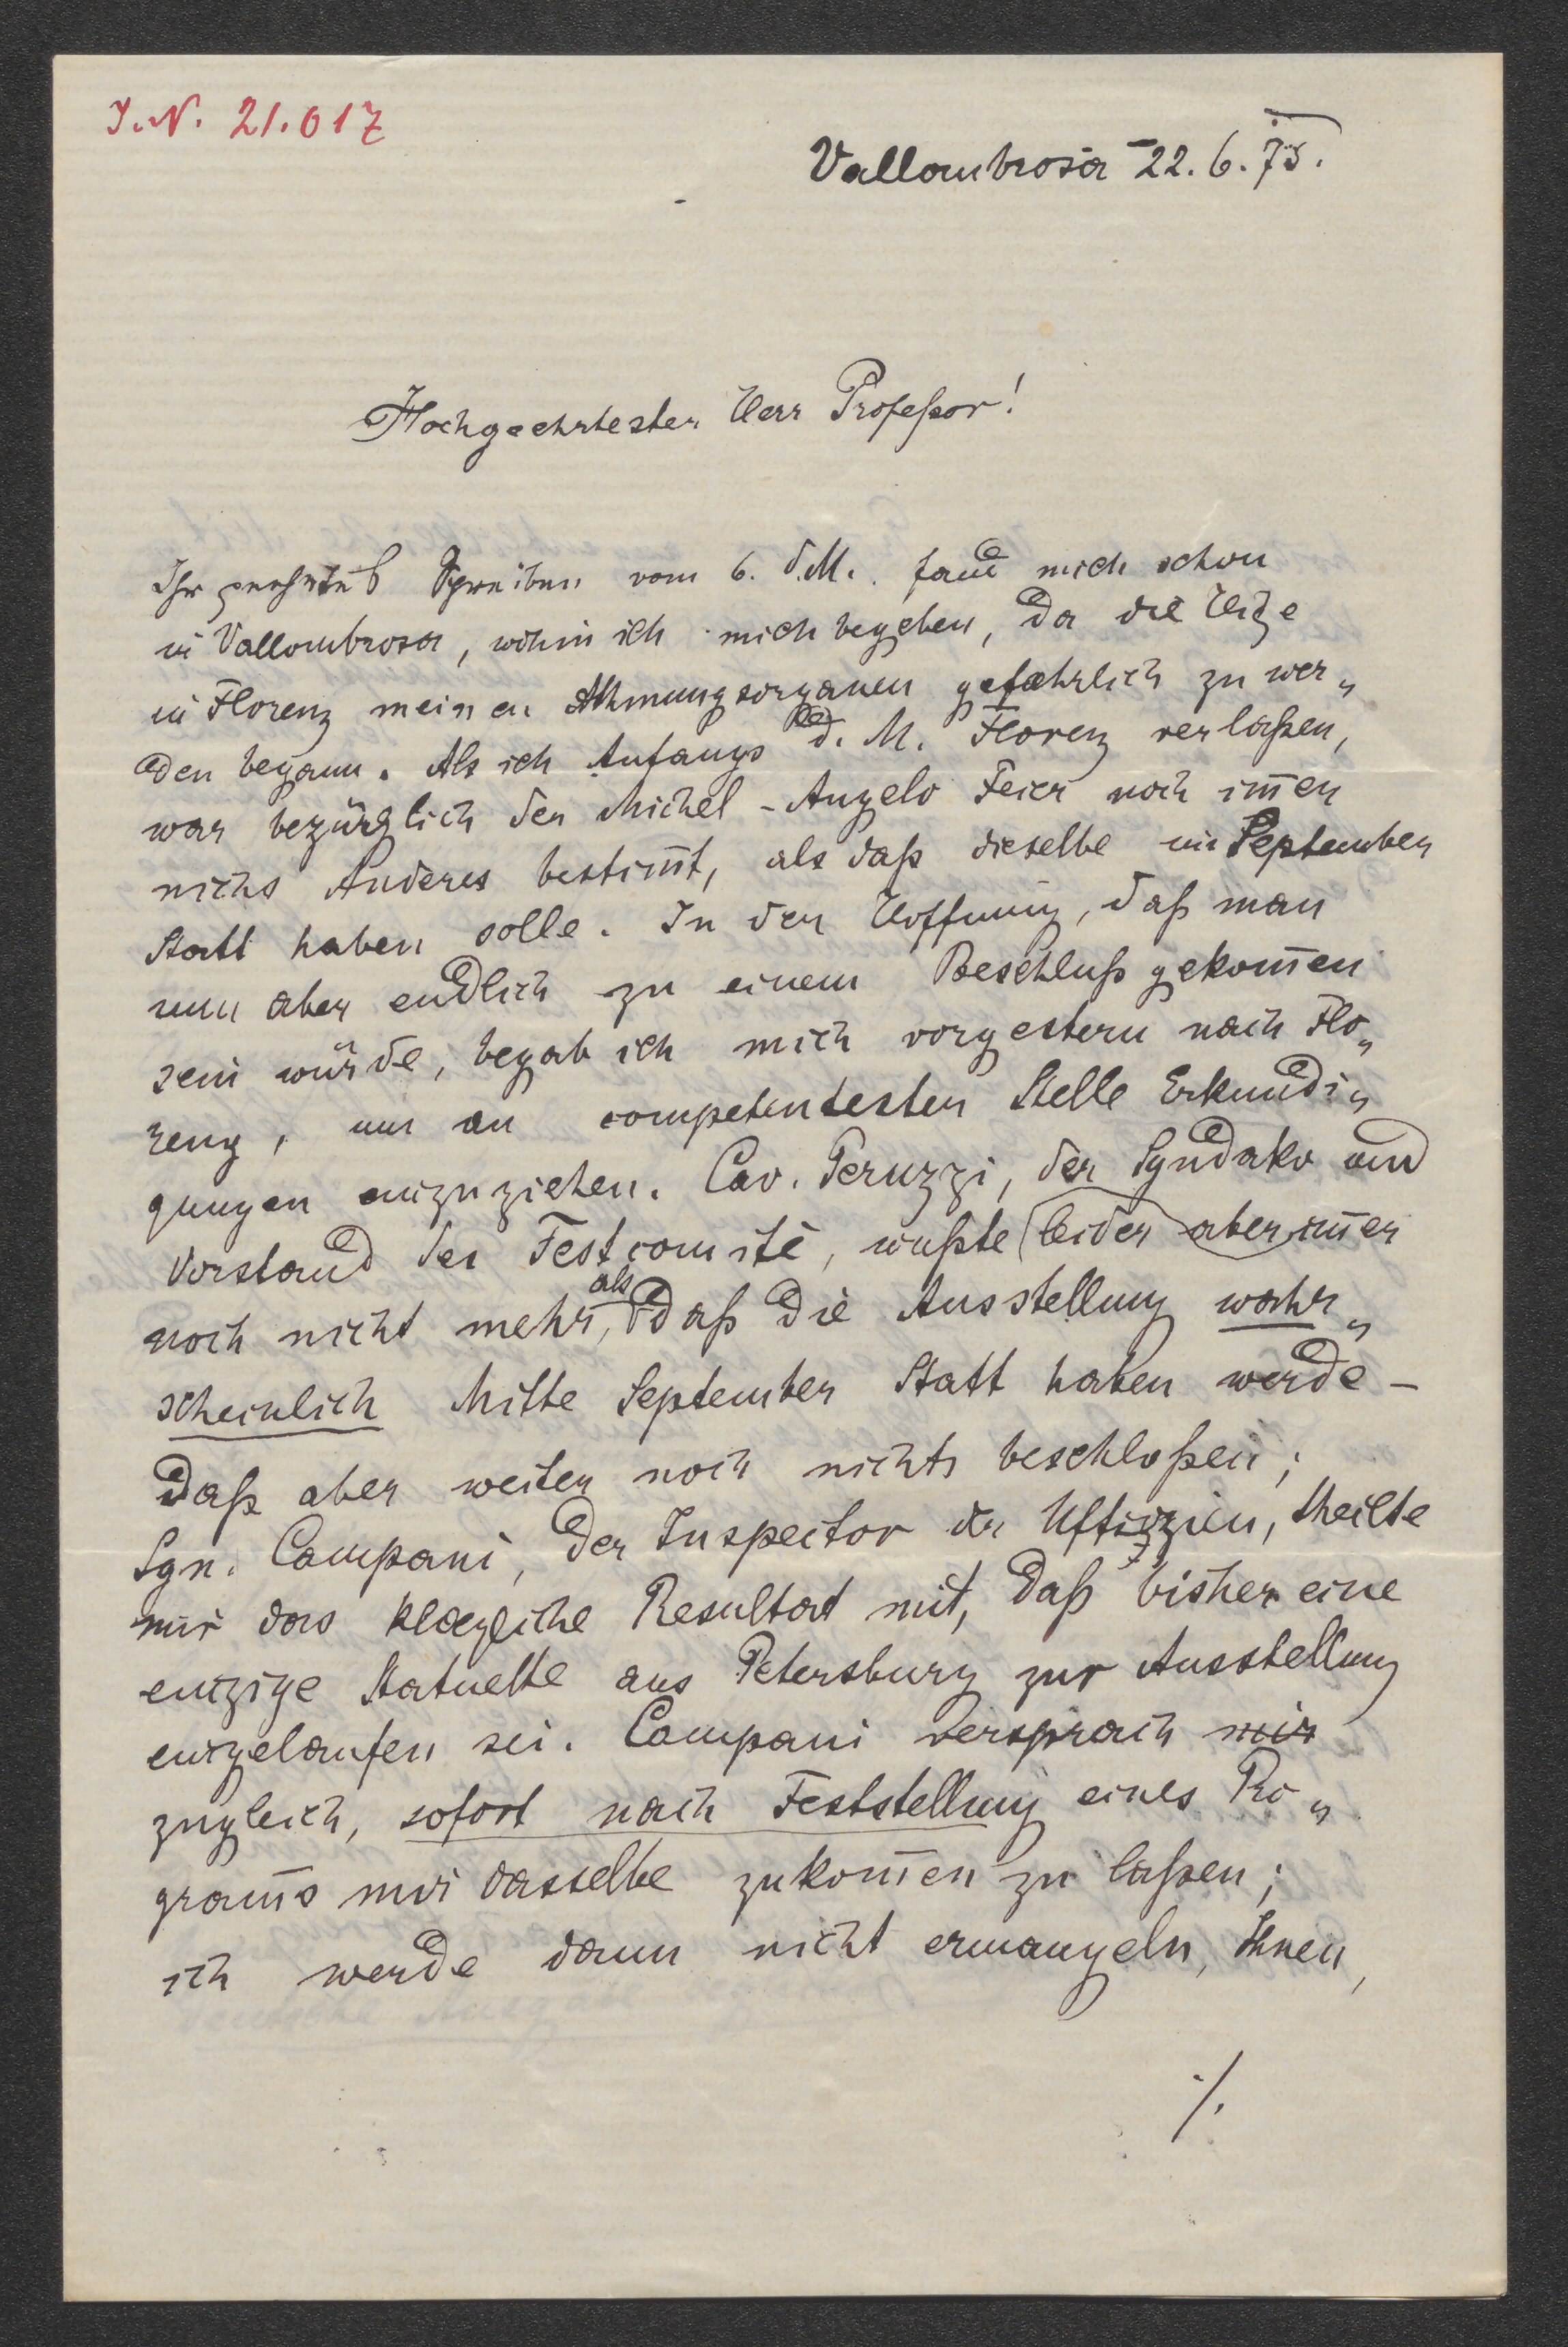 J.N. 21.017
Vallombrosa 22. 6. 75.
Hochgeehrtester Herr Profeßor!
Ihr geehrtes Schreiben vom 6. d. M. fand mich schon
in Vallombrosa, wohin ich mich begeben, da die Hitze
in Florenz meinen Athmungsorganen gefaehrlich zu wer„
den begann. Als ich Anfangs d. M. Florenz verlaßen,
war bezüglich der Michel-Angelo Feier noch im̄er
nichs Anderes bestim̄t, als daß dieselbe im September
Statt haben solle. In der Hoffnung, daß man
nun aber endlich zu einem Beschluß gekom̄en
sein würde, begab ich mich vorgestern nach Flo„
renz, um an competentester Stelle Erkundi„
gungen einzuziehen. Cav. Peruzzi, der Syndako und
Vorstand des Festcomité, wußte leider aber im̄er
noch nicht mehr, als daß die Ausstellung wahr„
scheinlich Mitte September Statt haben werde –
daß aber weiter noch nichts beschloßen;
Sgn. Campani, der Inspector der Uffizien, theilte
mir das klaegliche Resultat mit, daß bisher eine
einzige Statuette aus Petersburg zur Ausstellung
eingelaufen sei. Campani versprach mir
zugleich, sofort nach Feststellung eines Pro„
gram̄s mir dasselbe zukom̄en zu laßen;
ich werde dann nicht ermangeln, Ihnen,
./.